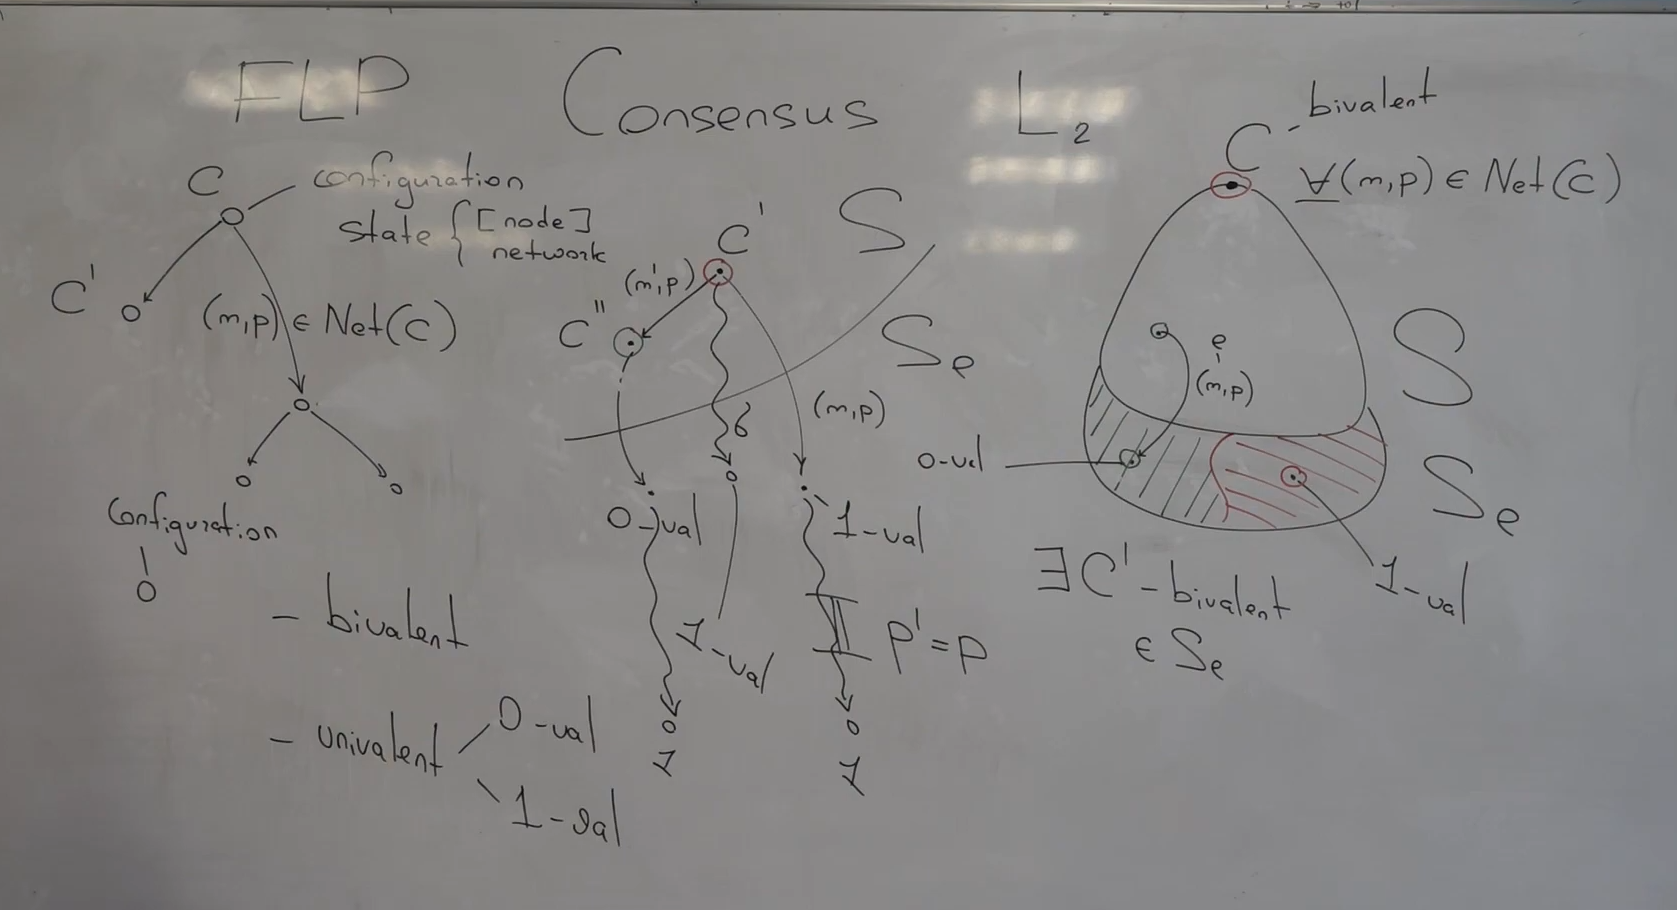 FLP Consensus L₂
C configuration
state { [node]
network
C'
(m,p) ∈ Net(C)
configuration
- bivalent
- univalent
0-val
1-val
C'
S
(m',p)
C''
Sₑ
(m,p)
б
0-val
1-val
1-val
p'=p
1
1
C - bivalent
∀(m,p) ∈ Net(C)
S
e
(m,p)
0-val
Sₑ
∃C'-bivalent
∈ Sₑ
1-val